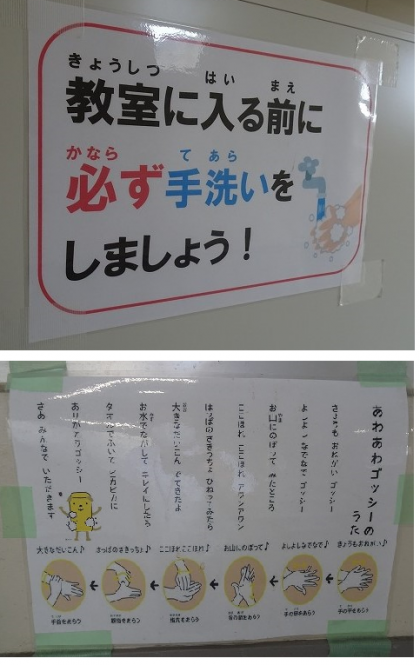 きょうしつ はい まえ
教室に入る前に
かなら て あら
必ず手洗いを
しましょう!
あわあわゴッシーの
うた
きょうも おねがい ゴッシー
よしよし なでなで ゴッシー
お山にのぼって みたところ
ここほれ ここほれ アワンアワン
はっぱのさきっちょ ひねってみたら
大きなだいこん でてきたよ
お水でながして キレイにしたら
タオルでふいて ピカピカに
ありがとうゴッシー
さあ みんなで いただきます
きょうもおねがい♪
よしよしなでなで♪
お山にのぼって♪
ここほれここほれ♪
はっぱのさきっちょ♪
大きなだいこん♪
手の平をあらう
手の甲をあらう
指の間をあらう
指先をあらう
親指をあらう
手首をあらう